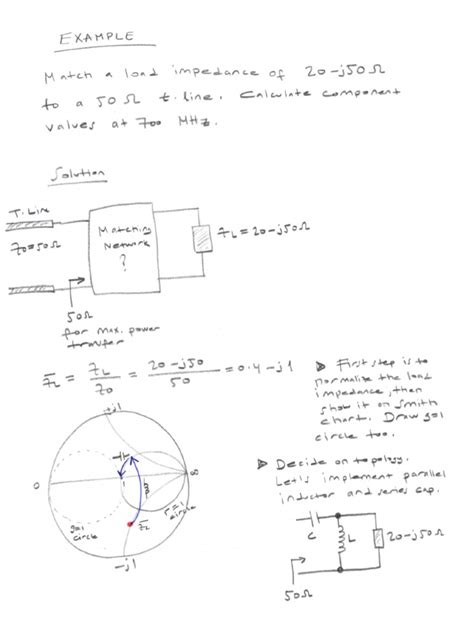 EXAMPLE
Match a load impedance of 20-j50Ω
to a 50Ω t.line. Calculate component
values at 700 MHz.
Solution
T. Line
Z0=50Ω
Matching
Network
?
ZL=20-j50Ω
50Ω
for max. power
transfer
z̄L = ZL/Z0 = 20-j50/50 = 0.4-j1
▶ First step is to
normalize the load
impedance, then
show it on Smith
chart. Draw g=1
circle too.
+j1
0
∞
g=1
circle
r=1
circle
z̄L
-j1
▶ Decide on topology.
Let's implement parallel
inductor and series cap.
C
L
20-j50Ω
50Ω